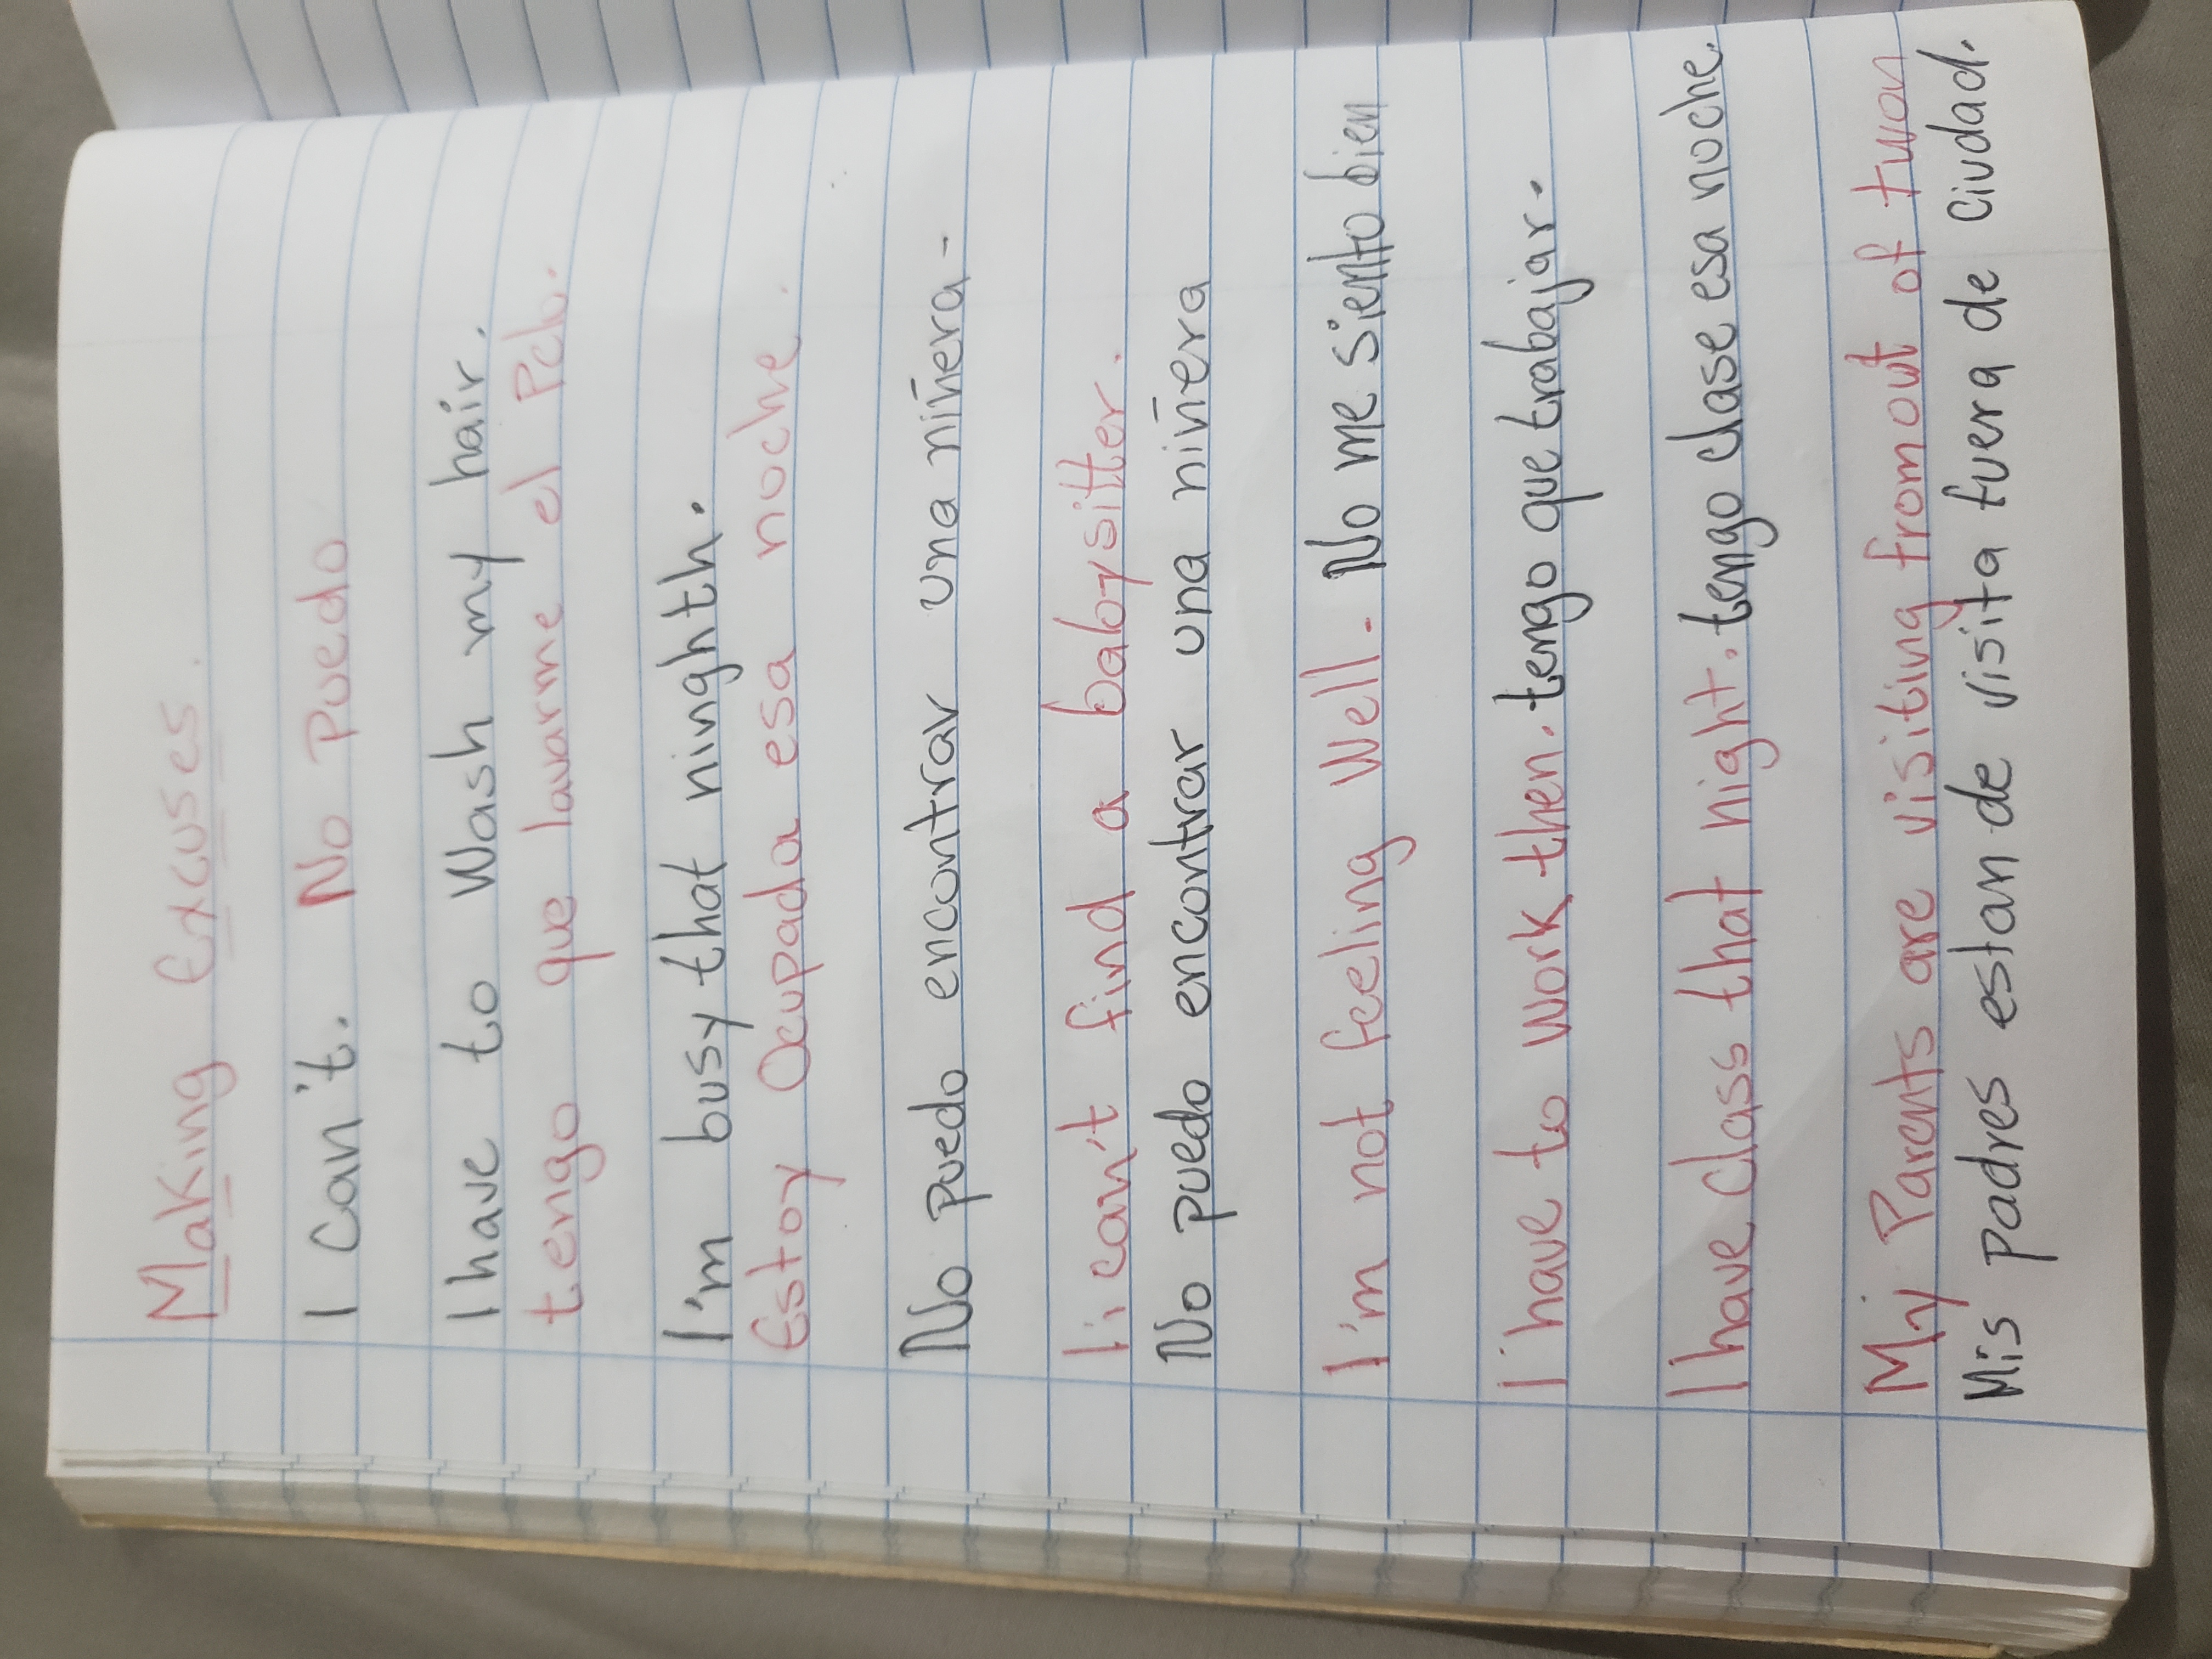 Making Excuses.
I can't. No puedo
I have to Wash my hair.
tengo que lavarme el Pelo.
I'm busy that ninghth.
Estoy Ocupada esa noche.
No puedo encontrar una niñera-
I, can't find a babysitter.
No puedo encontrar una niñera
I'm not feeling Well. No me siento bien
I have to work then. tengo que trabajar.
I have class that night. tengo clase esa noche.
My Parents are visiting from out of twon
Mis padres estan de visita fuera de ciudad.